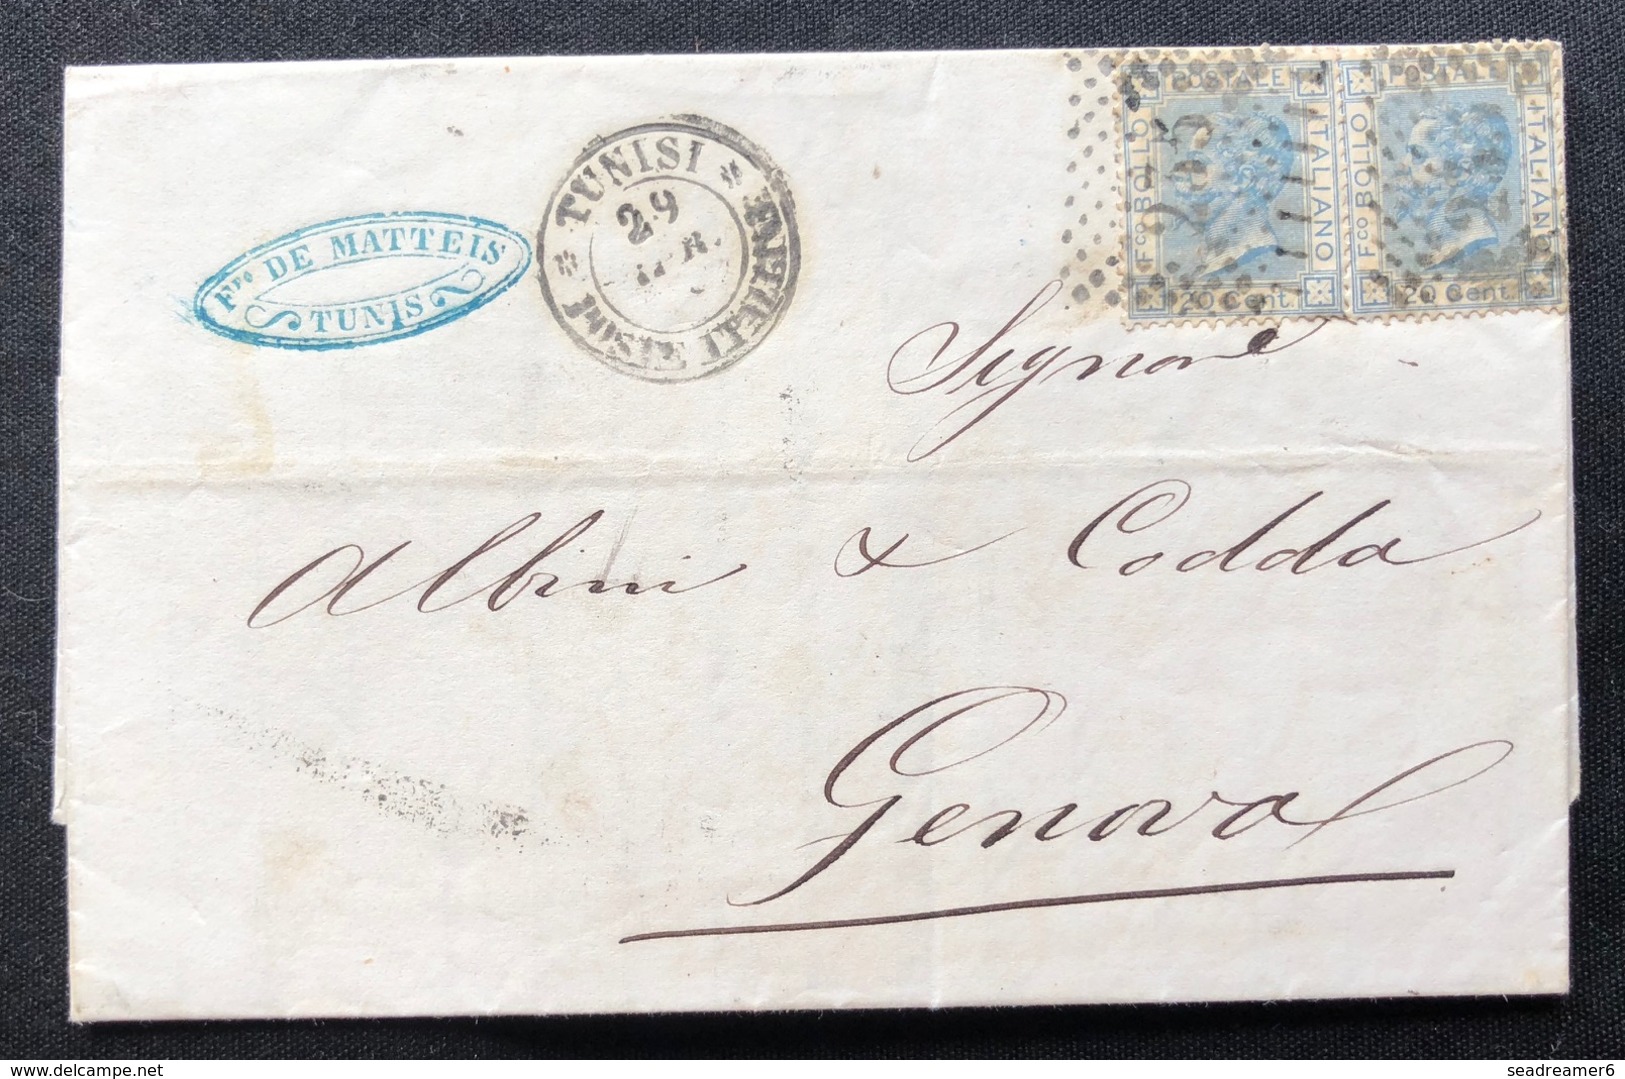 Fpo. DE MATTEIS
TUNIS
TUNISI
POSTE ITALIANE
29
Fco BOLLO POSTALE ITALIANO
20 Cent.
Fco BOLLO POSTALE ITALIANO
20 Cent.
235
Signore
Albini & Codda
Genova
delcampe.net
seadreamer6